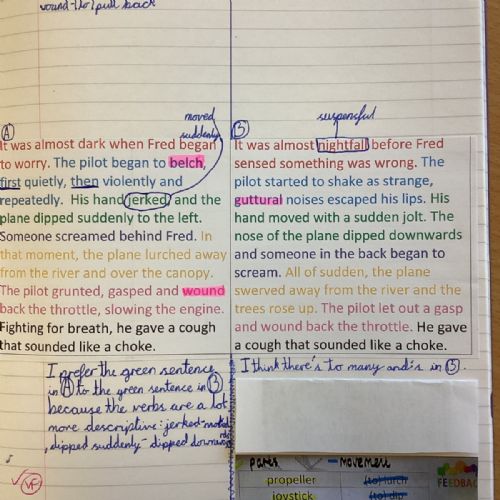 wound-(to) pull back
moved
suddenly
suspensful
A
It was almost dark when Fred began
to worry. The pilot began to belch,
first quietly, then violently and
repeatedly. His hand jerked and the
plane dipped suddenly to the left.
Someone screamed behind Fred. In
that moment, the plane lurched away
from the river and over the canopy.
The pilot grunted, gasped and wound
back the throttle, slowing the engine.
Fighting for breath, he gave a cough
that sounded like a choke.
B
It was almost nightfall before Fred
sensed something was wrong. The
pilot started to shake as strange,
guttural noises escaped his lips. His
hand moved with a sudden jolt. The
nose of the plane dipped downwards
and someone in the back began to
scream. All of sudden, the plane
swerved away from the river and the
trees rose up. The pilot let out a gasp
and wound back the throttle. He gave
a cough that sounded like a choke.
I prefer the green sentence
in A to the green sentence in B
because the verbs are a lot
more descriptive: jerked-moved
, dipped suddenly- dipped downwards
I think there's to many and's in B.
VF
parts
Movement
propeller
(to) lurch
joystick
(to) dip
FEEDBAC